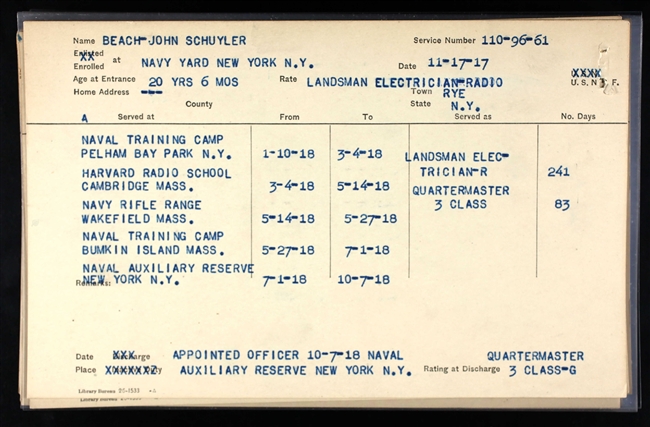 Name BEACH-JOHN SCHUYLER Service Number 110-96-61
Enlisted
XX
Enrolled at NAVY YARD NEW YORK N.Y. Date 11-17-17
Age at Entrance 20 YRS 6 MOS Rate LANDSMAN ELECTRICIAN-RADIO XXXX U. S. N. R. F.
Home Address --- County Town RYE State N.Y.
A Served at From To Served as No. Days
NAVAL TRAINING CAMP
PELHAM BAY PARK N.Y. 1-10-18 3-4-18 LANDSMAN ELEC-
HARVARD RADIO SCHOOL TRICIAN-R 241
CAMBRIDGE MASS. 3-4-18 5-14-18 QUARTERMASTER
NAVY RIFLE RANGE 3 CLASS 83
WAKEFIELD MASS. 5-14-18 5-27-18
NAVAL TRAINING CAMP
BUMKIN ISLAND MASS. 5-27-18 7-1-18
NAVAL AUXILIARY RESERVE
NEW YORK N.Y. 7-1-18 10-7-18
Remarks:
Date XXX Discharge APPOINTED OFFICER 10-7-18 NAVAL QUARTERMASTER
Place XXXXXXZ AUXILIARY RESERVE NEW YORK N.Y. Rating at Discharge 3 CLASS-G
Library Bureau